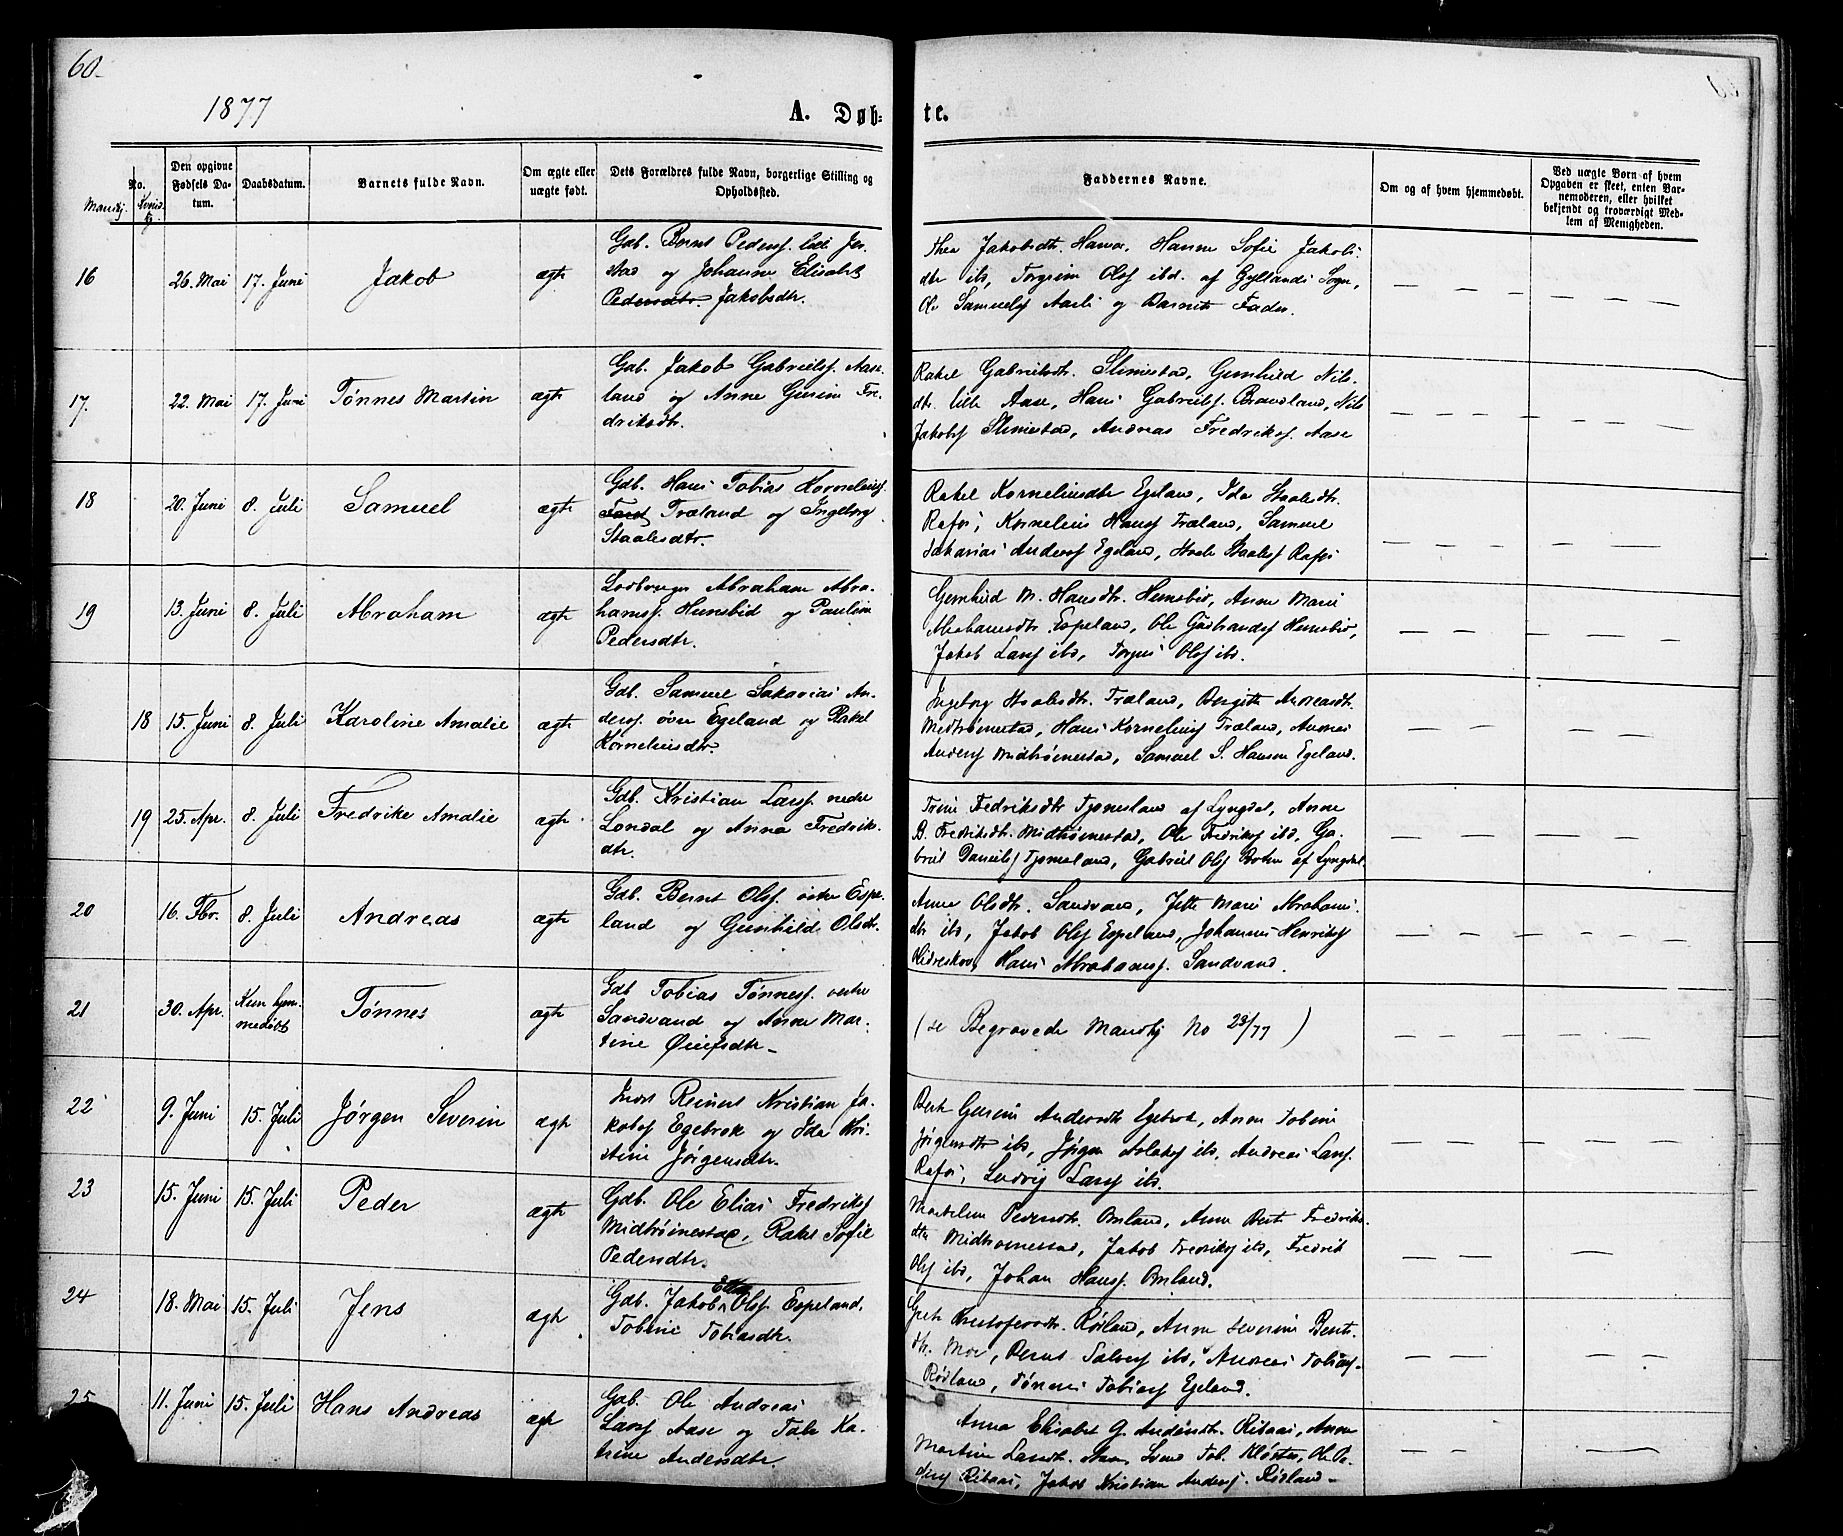 60.
1877
A. Døb-
te.
No.
Mandkj.
Kvindkj.
Den opgivne Fødsels Da-
tum.
Daabsdatum.
Barnets fulde Navn.
Om ægte eller
uægte født.
Dets Forældres fulde Navn, borgerlige Stilling og
Opholdssted.
Faddernes Navne.
Om og af hvem hjemmedøbt.
Ved uægte Børn af hvem
Opgaven er skeet, enten Bar-
nemoderen, eller hvilket
bekjendt og troværdigt Med-
lem af Menigheden.
16 26. Mai 17. Juni Jakob ægte
Gdb. Bernt Peders. lille Jer-
stad og Johanne Elisabet
Pedersdtr. Jakobsdtr.
Thea Jakobsdt. Hamar, Hanne Sofie Jakobs-
dtr ibd, Torgrim Olsf ibd. af Gyllands Sogn,
Ole Samuelsf Aasli og Barnets Fader.
17. 22. Mai 17. Juni Tønnes Martin ægte
Gdb. Jakob Gabrielsf. Aase-
land og Anne Gurine Fre-
driksdtr.
Rakel Gabrielsdt. Slimestad, Gunhild Nils-
dt. lille Aase, Hans Gabrielsf. Brandland, Nils
Jakobsf Slimestad, Andreas Fredriksf. Aase
18 20. Juni 8. Juli Samuel ægte
Gdb. Hans Tobias Korneliusf.
Træland og Ingeborg
Staalesdtr.
Rakel Korneliusdtr Egeland, Ida Staalesdt.
Rafos, Kornelius Hansf Træland, Samuel
Sakarias Andersf Egeland, Staale Staalesf Rafos
19 13. Juni 8. Juli Abraham ægte
Abraham Abra-
hamsf. Hunsbed og Pauline
Pedersdtr.
Gunhild M. Hansdt. Hunsbed, Anne Marie
Abrahamsdtr Espeland, Ole Gudbrandsf Hunsbed,
Jakob Larsf ibd, Torgeus Olsf ibd.
18 15. Juni 8. Juli Karoline Amalie ægte
Gdb. Samuel Sakarias An-
dersf. øvre Egeland og Rakel
Korneliusdtr.
Ingeborg Staalesdt. Træland, Bergitte Andreasdt.
Midtrømestad, Hans Korneliusf Træland, Andreas
Andersf Midtrømestad, Samuel S. Hansen Egeland.
19 25. Apr. 8. Juli Fredrike Amalie ægte
Gdb. Kristian Larsf. nedre
Londal og Anna Fredriks-
dtr.
Trine Fredriksdtr Tjomsland af Lyngdal, Anne
B. Fredriksdt. Midtrømestad, Ole Fredriksf ibd, Ga-
briel Danielsf Tjomsland, Gabriel Olsf af Lyngdal
20 16. Fbr. 8. Juli Andreas ægte
Gdb. Bernt Olsf. vestre Espe-
land og Gunhild Olsdt.
Anne Olsdt. Sandvand, Jette Marie Abrahams-
dtr ibd, Jakob Olsf Espeland, Johannes Henriksf
Hidreskov, Hans Abrahamsf. Sandvand.
21 30. Apr. Kun hjem-
medøbt Tønnes ægte
Gdb Tobias Tønnesf. vestre
Sandvand og Anne Mar-
tine Øiufsdtr
(se Begravede Mandkj No 23/77)
22 9. Juni 15. Juli Jørgen Severin ægte
Inds Reinert Kristian Ja-
kobsf Egebrok og Ida Kri-
stine Jørgensdtr.
Berte Gurine Andersdt. Egebrok, Anne Tobine
Jørgensdtr ibd, Jørgen Aslaksf ibd, Andreas Larsf.
Rafos, Ludvig Larsf ibd.
23 15. Juni 15. Juli Peder ægte
Gdb. Ole Elias Fredriksf
Midtrømestad, Rakel Sofie
Pedersdtr.
Pedersdt. Omland, Anne Berte Fredriks-
dtr Midtrømestad, Jakob Fredriksf ibd, Fredrik
Olsf ibd, Johan Hansf. Omland.
24 18. Mai 15. Juli Jens ægte
Gdb. Jakob Elias Olsf. Espeland,
Tobine Tobiasdtr.
Grete Kristofersdt. Rødland, Anne Severine Bents-
dt. Moe, Bernt Salvesf ibd, Andreas Tobiasf.
Rødland, Tønnes Tobiasf Egeland.
25 11. Juni 15. Juli Hans Andreas ægte
Gdb. Ole Andreas
Larsf Aase og Tale Ka-
trine Andersdtr.
Anna Elisabet G. Andersdt. Ribaas, Anne
Martine Larsdt. Aase, Svend Tob. Kloster, Ole Pe-
dersf Ribaas, Jakob Kristian Andersf. Rødland